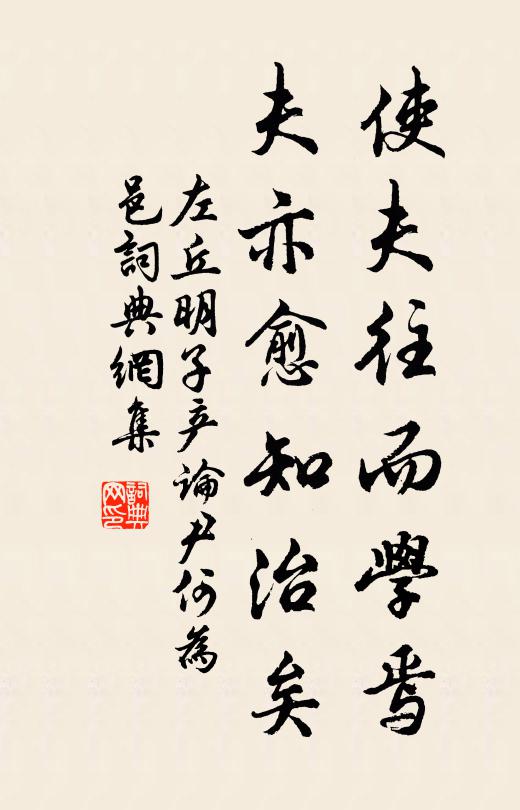 使夫往而學焉
夫亦愈知治矣
左丘明子产論尹何為
邑詞典網集
詞典
网印